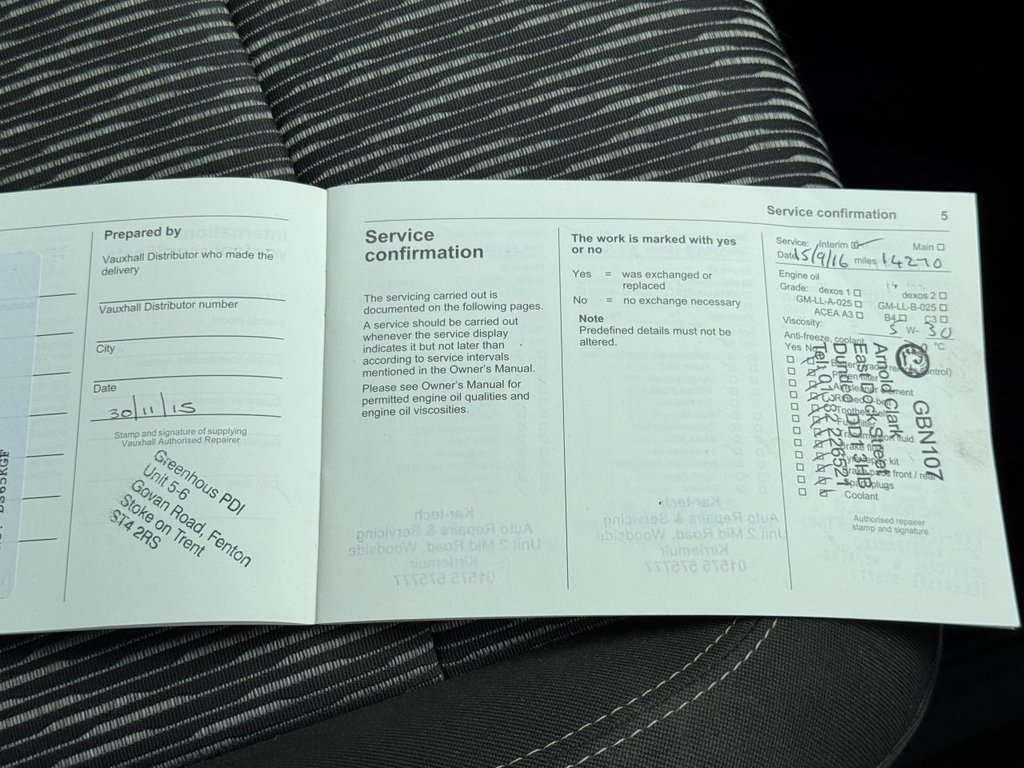 Prepared by
Vauxhall Distributor who made the
delivery
Vauxhall Distributor number
City
Date
30/11/15
Stamp and signature of supplying
Vauxhall Authorised Repairer
Greenhous PDI
Unit 5-6
Govan Road, Fenton
Stoke on Trent
ST4 2RS
Service
confirmation
The servicing carried out is
documented on the following pages.
A service should be carried out
whenever the service display
indicates it but not later than
according to service intervals
mentioned in the Owner's Manual.
Please see Owner's Manual for
permitted engine oil qualities and
engine oil viscosities.
The work is marked with yes
or no
Yes = was exchanged or
replaced
No = no exchange necessary
Note
Predefined details must not be
altered.
Service confirmation 5
Service: Interim Main
Date 15/9/16 miles 14270
Engine oil
Grade: dexos 1 dexos 2
GM-LL-A-025 GM-LL-B-025
ACEA A3 B4 C3
Viscosity: 5 W- 30
Anti-freeze, coolant °C
Yes No
Coolant
Authorised repairer
stamp and signature
GBN107
Arnold Clark
East Dock Street
Dundee DD1 3HB
Tel: 01382 226521
Kar-tech
Auto Repairs & Servicing
Unit 2 Mid Road, Woodside
Kirriemuir
01575 575777
Kar-tech
Auto Repairs & Servicing
Unit 2 Mid Road, Woodside
Kirriemuir
01575 575777